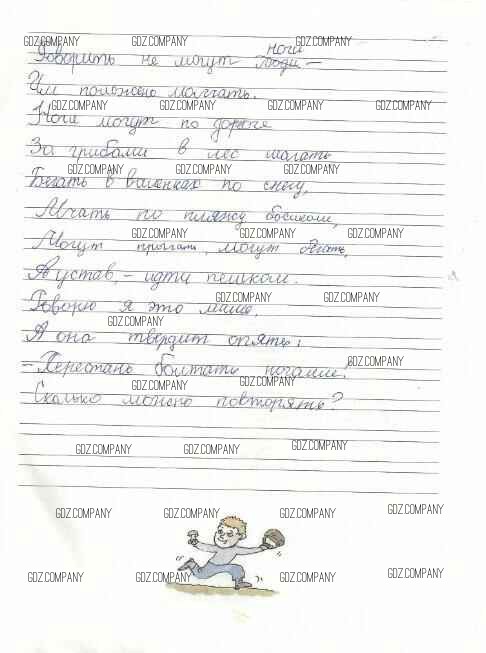 ноги
Говорить не могут люди –
Им положено молчать.
Ноги могут по дороге
За грибами в лес шагать
Бегать в валенках по снегу,
Мчать по пляжу босиком,
Могут прыгать, могут бегать,
А устав, – идти пешком.
Говорю я это маме,
А она твердит опять:
– Перестань болтать ногами!
Сколько можно повторять?
GDZ.COMPANY GDZ.COMPANY GDZ.COMPANY
GDZ.COMPANY GDZ.COMPANY GDZ.COMPANY GDZ.COMPANY
GDZ.COMPANY GDZ.COMPANY GDZ.COMPANY
GDZ.COMPANY GDZ.COMPANY GDZ.COMPANY
GDZ.COMPANY GDZ.COMPANY
GDZ.COMPANY
GDZ.COMPANY
GDZ.COMPANY GDZ.COMPANY
GDZ.COMPANY GDZ.COMPANY GDZ.COMPANY
GDZ.COMPANY GDZ.COMPANY GDZ.COMPANY GDZ.COMPANY
GDZ.COMPANY GDZ.COMPANY GDZ.COMPANY GDZ.COMPANY